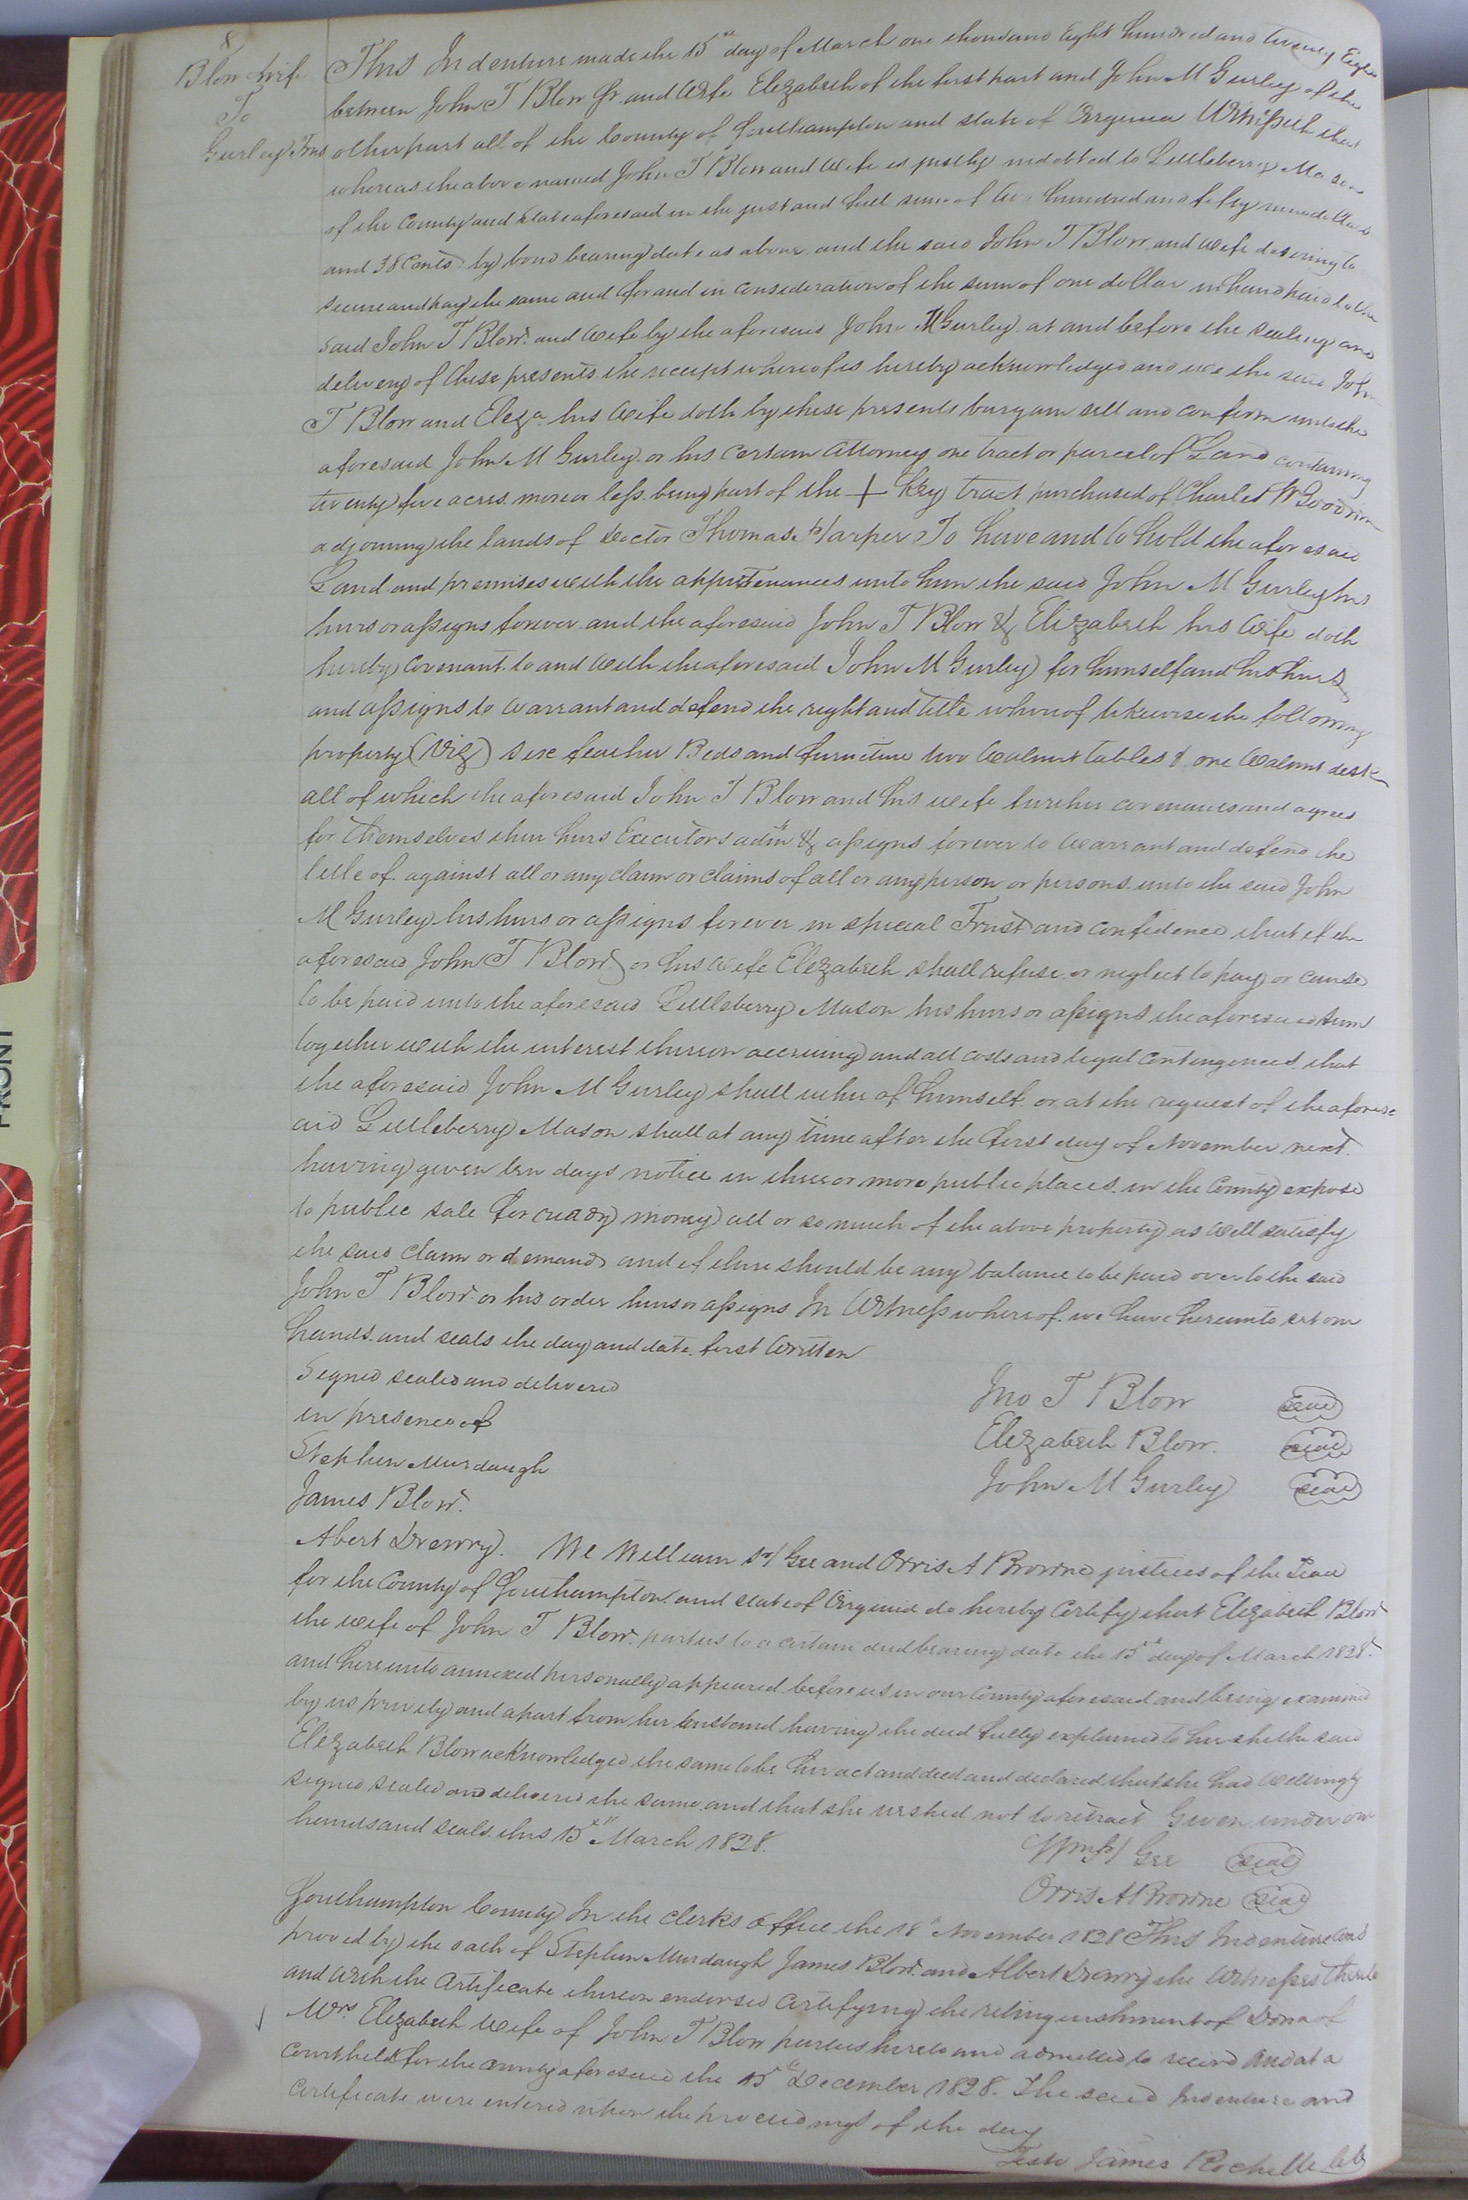 8
Blow & wife
To
Gurley Trus
This Indenture made the 15th day of March one thousand Eight hundred and twenty Eight
between John T Blow Jr. and Wife Elizabeth of the first part and John M Gurley of the
other part all of the County of Southampton and state of Virginia Witnesseth that
whereas the above named John T Blow and Wife is justly indebted to Littleberry Mason
of the County and State aforesaid in the just and full sum of two hundred and fifty nine dollars
and 38 Cents by bond bearing date as above and the said John T Blow and Wife desiring to
secure and pay the same and for and in consideration of the sum of one dollar in hand paid to the
said John T Blow and Wife by the aforesaid John M Gurley at and before the sealing and
delivery of these presents the receipt whereof is hereby acknowledged and we the said John
T Blow and Eliza. his Wife doth by these presents bargain sell and confirm unto the
aforesaid John M Gurley or his certain Attorney one tract or parcel of Land containing
twenty five acres more or less being part of the + Key tract purchased of Charles W Goodrich
adjoining the lands of Doctor Thomas Harper To have and to hold the aforesaid
Land and premises with the appurtenances unto him the said John M Gurley his
heirs or assigns forever and the aforesaid John T Blow & Elizabeth his Wife doth
hereby covenant to and with the aforesaid John M Gurley for himself and his heirs
and assigns to warrant and defend the right and title whereof likewise the following
property (Viz) six feather Beds and furniture two Walnut tables & one Walnut desk
all of which the aforesaid John T Blow and his wife further covenants and agrees
for themselves their heirs Executors adm & assigns forever to Warrant and defend the
title of against all or any claim or claims of all or any person or persons unto the said John
M Gurley his heirs or assigns forever in special Trust and confidence that if the
aforesaid John T Blow or his Wife Elizabeth shall refuse or neglect to pay or cause
to be paid unto the aforesaid Littleberry Mason his heirs or assigns the aforesaid sum
together with the interest thereon accruing and all costs and legal contengences that
the aforesaid John M Gurley shall either of himself or at the request of the aforesa
aid Littleberry Mason shall at any time after the first day of November next
having given ten days notice in three or more public places in the County expose
to public sale for ready money all or so much of the above property as Will satisfy
the said claim or demand and if there should be any balance to be paid over to the said
John T Blow or his order heirs or assigns In Witness whereof we have hereunto set our
hands and seals the day and date first Written
Signed sealed and delivered
in presence of
Stephen Murdaugh
James Blow.
Jno T Blow seal
Elizabeth Blow. seal
John M Gurley seal
Albert Drewry. We William H Gee and Orris A Browne justices of the Peace
for the County of Southampton and state of Virginia do hereby Certify that Elizabeth Blow
the wife of John T Blow parties to a certain deed bearing date the 15th day of March 1828.
and hereunto annexed personally appeared before us in our County aforesaid and being examined
by us privily and apart from her husband having the deed fully explained to her she the said
Elizabeth Blow acknowledged the same to be her act and deed and declared that she had Willingly
signed sealed and delivered the same and that she wished not to retract Given under our
hands and seals this 15th March 1828.
Wm H Gee seal
Orris A Browne seal
Southampton County In the clerks office the 18th November 1828 This Indenture was
proved by the oath of Stephen Murdaugh James Blow and Albert Drewry the Witnesses thereto
and With the Certificate thereon endorsed Certifying the relinquishment of Dower of
Mrs. Elizabeth Wife of John T Blow parties hereto and admitted to record And at a
Court held for the County aforesaid the 15th December 1828. The said Indenture and
Certificate were entered upon the proceedings of the day
Teste James Rochelle Clk
FRONT